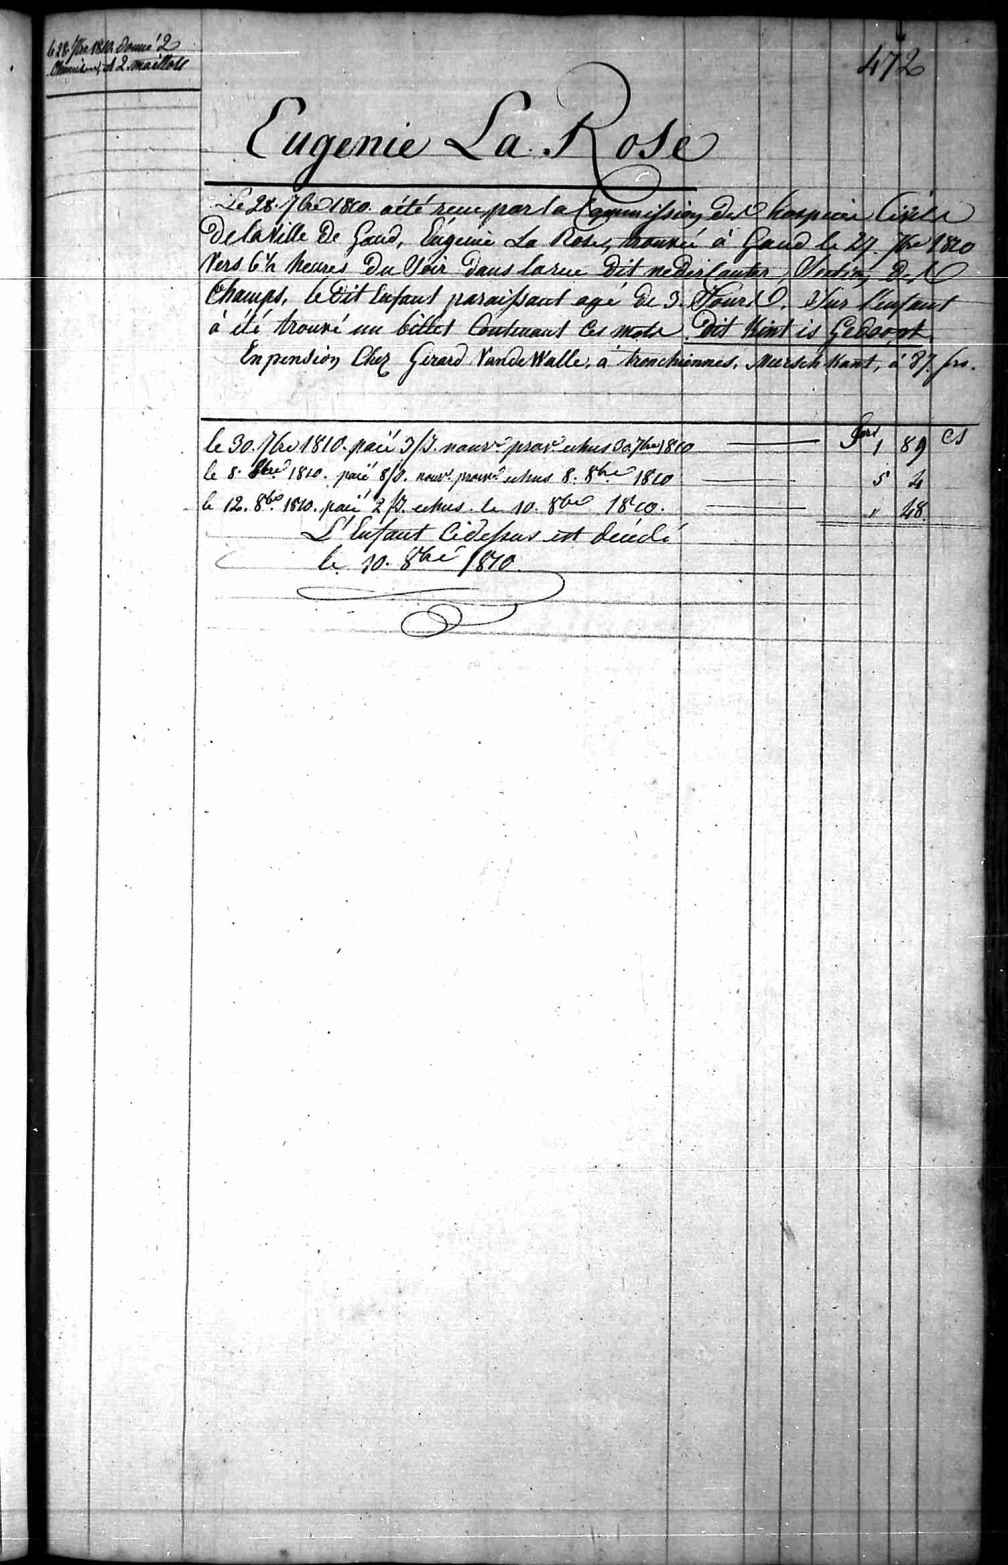 le 28. 7bre 1810. donné 2
chemises, et 2 maillots
472
Eugenie La Rose
Le 28. 7bre 1810. a été recue par la Commission des hospices Civils
de la Ville de Gand, Eugenie La Rose, trouvée à Gand le 27. 7bre 1810
Vers 6½ heures du Soir dans la rue dit nederlanter, Section des
Champs, le dit Enfant paraissant agé de 3. Jours. Sur l'enfant
à été trouvé un billet Contenant Ces mots Dit Kint is Gedoopt
En pension Chez Gerard Vande Walle, à tronchiennes, Mersch Kant, à 87. frs.
frs cs
le 30. 7bre 1810. paié 3/J. nourre prove echus 30 7bre 1810 1 89
le 8. 8bre 1810. paié 8/J. nourre prove echus 8. 8bre 1810 5 4
le 12. 8bre 1810. paié 2/J. echus le 10. 8bre 1810. " 48
L'Enfant Cidessus est décédé
le 10. 8bre 1810.